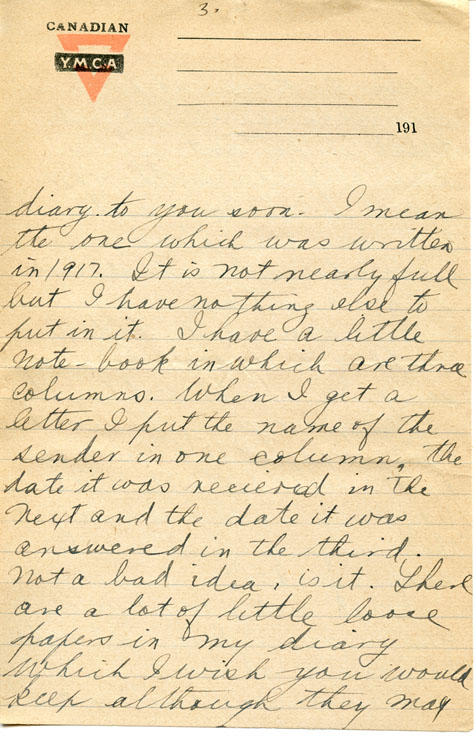 3.
CANADIAN
Y.M.C.A
191
diary to you soon. I mean
the one which was written
in 1917. It is not nearly full
but I have nothing else to
put in it. I have a little
note-book in which are three
columns. When I get a
letter I put the name of the
sender in one column, the
date it was recieved in the
next and the date it was
answered in the third.
Not a bad idea, is it. There
are a lot of little loose
papers in my diary
which I wish you would
keep although they may